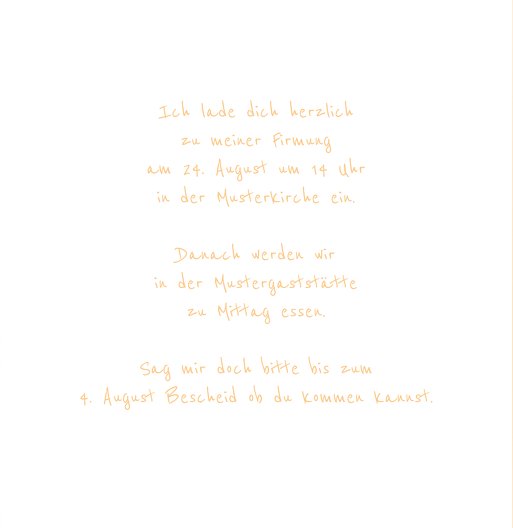 Ich lade dich herzlich
zu meiner Firmung
am 24. August um 14 Uhr
in der Musterkirche ein.
Danach werden wir
in der Mustergaststätte
zu Mittag essen.
Sag mir doch bitte bis zum
4. August Bescheid ob du kommen kannst.